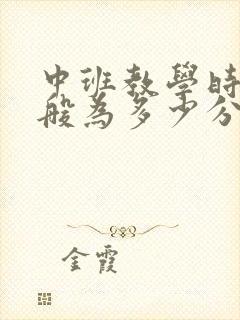 中班教學時
般為多少分
金霞